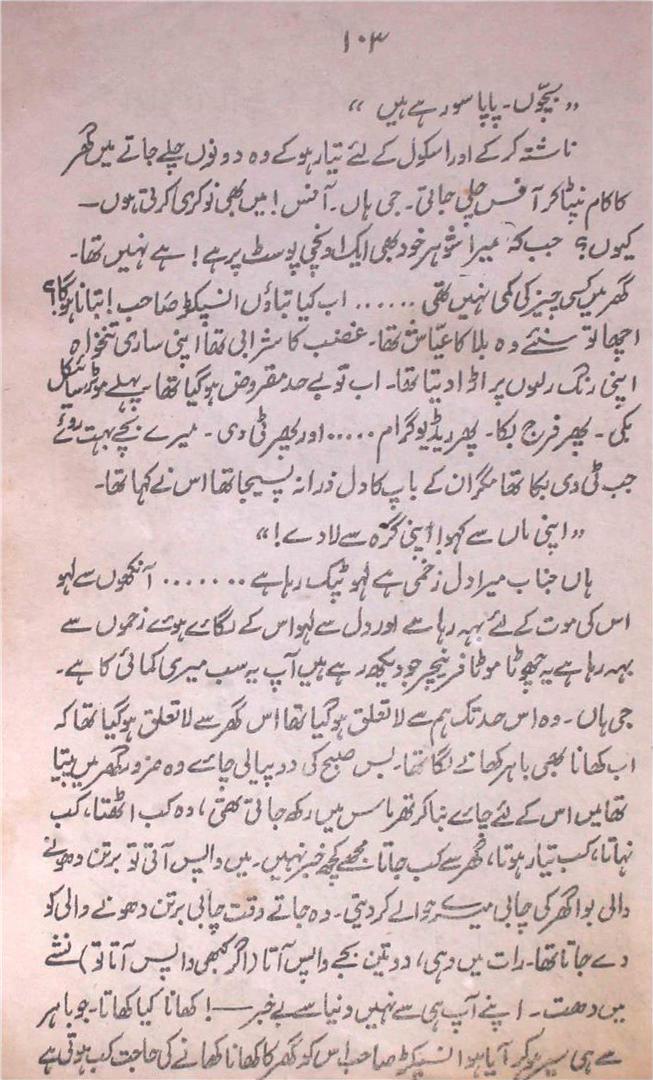 ۱۰۳
”بچّوں۔ پاپا سو رہے ہیں“
ناشتہ کر کے اور اسکول کے لئے تیار ہو کے وہ دونوں چلے جاتے میں گھر
کا کام نپٹا کر آفس چلی جاتی۔ جی ہاں۔ آفس! میں بھی نوکری کرتی ہوں۔
کیوں؟ جب کہ میرا شوہر خود بھی ایک اونچی پوسٹ پر ہے! ہے نہیں تھا۔
گھر میں کسی چیز کی کمی نہیں تھی ...... اب کیا بتاؤں انسپکٹر صاحب! بتانا ہوگا؟
اچھا تو سنئے وہ بلا کا عیّاش تھا۔ غضب کا شرابی تھا اپنی ساری تنخواہ
اپنی رنگ رلیوں پر اڑا دیتا تھا۔ اب تو بے حد مقروض ہو گیا تھا۔ پہلے موٹر سائیکل
بکی۔ پھر فرج بکا۔ پھر ریڈیو گرام ..... اور پھر ٹی وی۔ میرے بچے بہت روئے
جب ٹی وی بکا تھا مگر ان کے باپ کا دل ذرا نہ پسیجا تھا اس نے کہا تھا۔
”اپنی ماں سے کہو! اپنی گرہ سے لا دے!“
ہاں جناب میرا دل زخمی ہے لہو ٹپک رہا ہے ........ آنکھوں سے لہو
اس کی موت کے لئے بہہ رہا ہے اور دل سے لہو اس کے لگائے ہوئے زخموں سے
بہہ رہا ہے یہ چھوٹا موٹا فرنیچر جو دیکھ رہے ہیں آپ یہ سب میری کمائی کا ہے۔
جی ہاں۔ وہ اس حد تک ہم سے لاتعلق ہو گیا تھا اس گھر سے لاتعلق ہو گیا تھا کہ
اب کھانا بھی باہر کھانے لگا تھا۔ بس صبح کی دو پیالی چائے وہ ضرور گھر میں پیتا
تھا میں اس کے لئے چائے بنا کر تھرماس میں رکھ جاتی تھی، وہ کب اٹھتا، کب
نہاتا، کب تیار ہوتا، گھر سے کب جاتا مجھے کچھ خبر نہیں۔ میں واپس آتی تو برتن دھونے
والی بوا گھر کی چابی میرے حوالے کر دیتی۔ وہ جاتے وقت چابی برتن دھونے والی کو
دے جاتا تھا۔ رات میں وہی، دو تین بجے واپس آتا (اگر کبھی واپس آتا تو) نشے
میں دھت۔ اپنے آپ ہی سے نہیں دنیا سے بے خبر —! کھانا کیا کھاتا۔ جو باہر
سے ہی سیر ہو کر آیا ہو انسپکٹر صاحب اس کو گھر کا کھانا کھانے کی حاجت کب ہوتی ہے